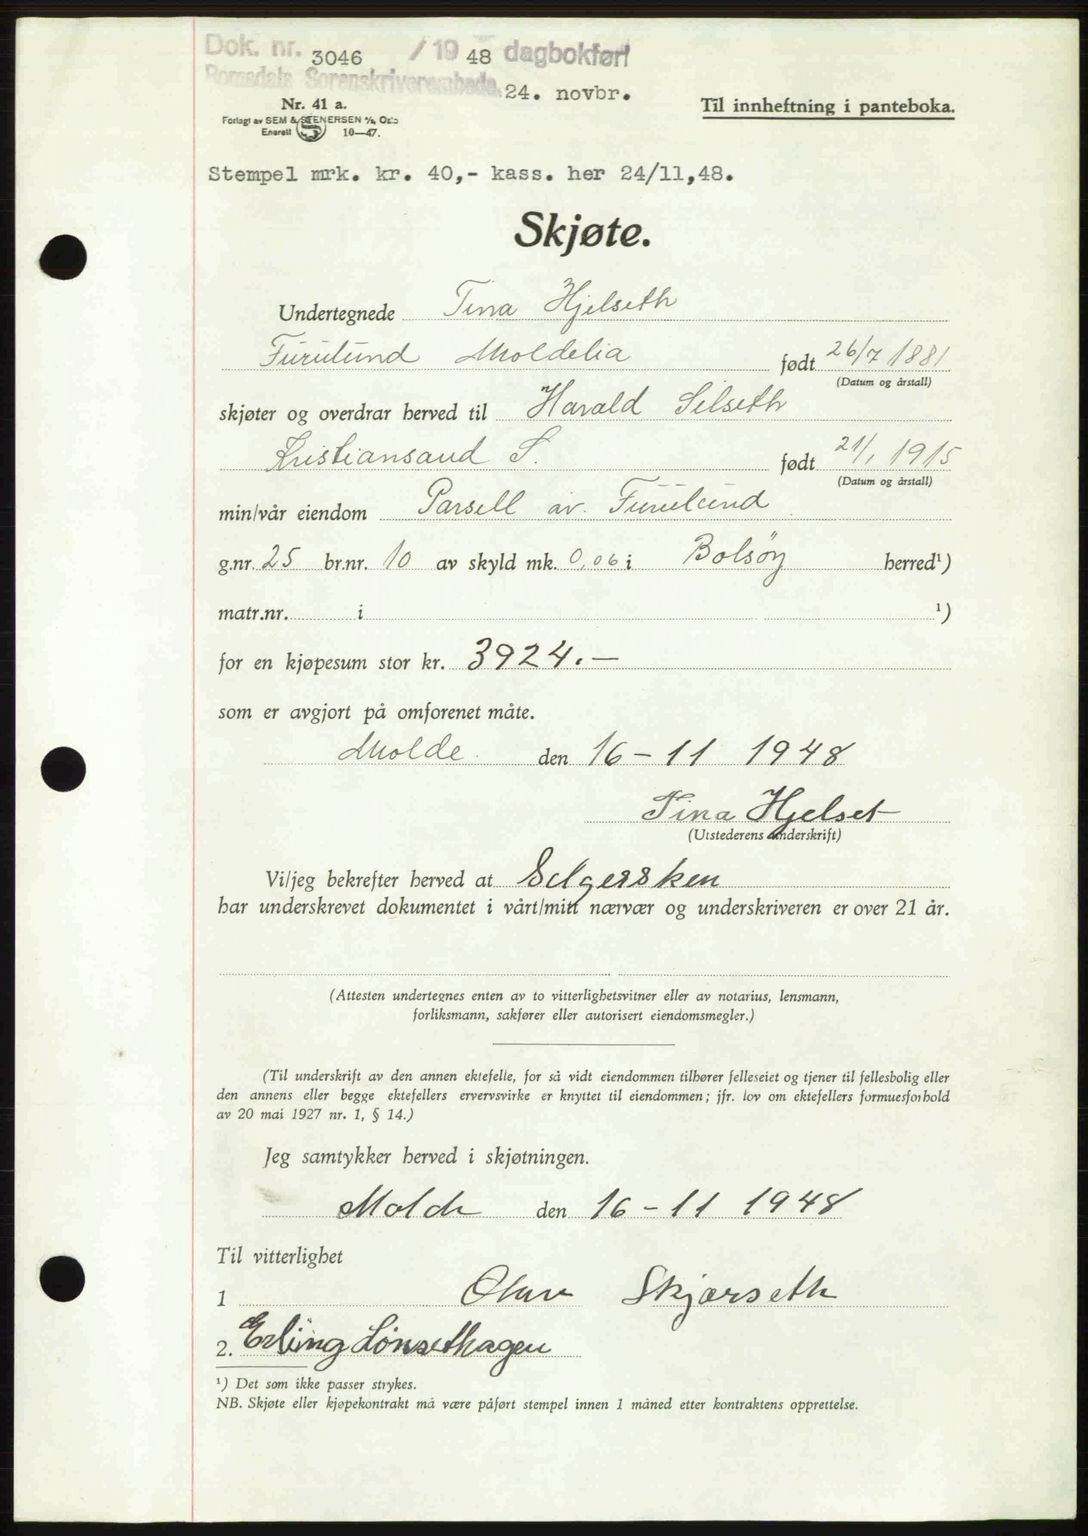 Dok. nr. 3046 / 19 48 dagbokført
Romsdals Sorenskriverembede. 24. novbr.
Nr. 41 a.
Til innheftning i panteboka.
Forlagt av SEM & STENERSEN A/s, Oslo
Enerett S 10—47.
Stempel mrk. kr. 40,- kass. her 24/11,48.
Skjøte.
Undertegnede Tina Hjelseth
Furulund Moldelia født 26/7 1881
(Datum og årstall)
skjøter og overdrar herved til Harald Silseth
Kristiansand S. født 21/1 1915
(Datum og årstall)
min/vår eiendom Parsell av Furulund
g.nr. 25 br.nr. 10 av skyld mk. 0,06 i Bolsøy herred¹)
matr.nr. i ¹)
for en kjøpesum stor kr. 3924.—
som er avgjort på omforenet måte.
Molde den 16-11 1948
Tina Hjelset
(Utstederens underskrift)
Vi/jeg bekrefter herved at Selgersken
har underskrevet dokumentet i vårt/mitt nærvær og underskriveren er over 21 år.
(Attesten undertegnes enten av to vitterlighetsvitner eller av notarius, lensmann,
forliksmann, sakfører eller autorisert eiendomsmegler.)
(Til underskrift av den annen ektefelle, for så vidt eiendommen tilhører felleseiet og tjener til fellesbolig eller
den annens eller begge ektefellers ervervsvirke er knyttet til eiendommen; jfr. lov om ektefellers formuesforhold
av 20 mai 1927 nr. 1, § 14.)
Jeg samtykker herved i skjøtningen.
Molde den 16-11 1948
Til vitterlighet
1 Olav Skjørseth
2. Erling Lønsethagen
¹) Det som ikke passer strykes.
NB. Skjøte eller kjøpekontrakt må være påført stempel innen 1 måned etter kontraktens opprettelse.